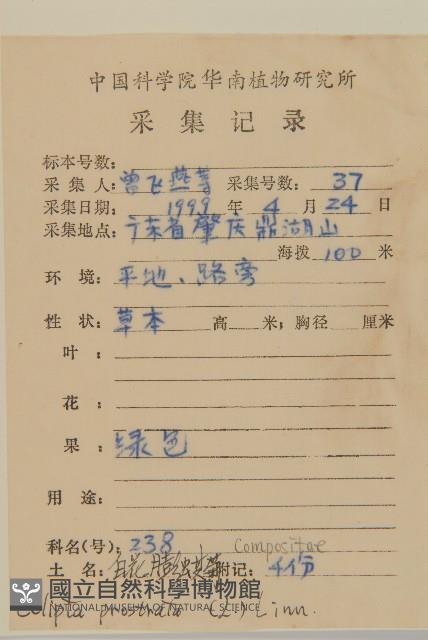 中国科学院华南植物研究所
采集记录
标本号数：
采集人：曾飞燕等 采集号数：37
采集日期：1999年4月24日
采集地点：广东省肇庆鼎湖山
海拨 100 米
环境：平地、路旁
性状：草本 高 米；胸径 厘米
叶：
花：
果：绿色
用途：
科名(号)：238 Compositae
土名：白花 附记：4份
國立自然科學博物館
NATIONAL MUSEUM OF NATURAL SCIENCE
Eclipta prostrata (L.) Linn.